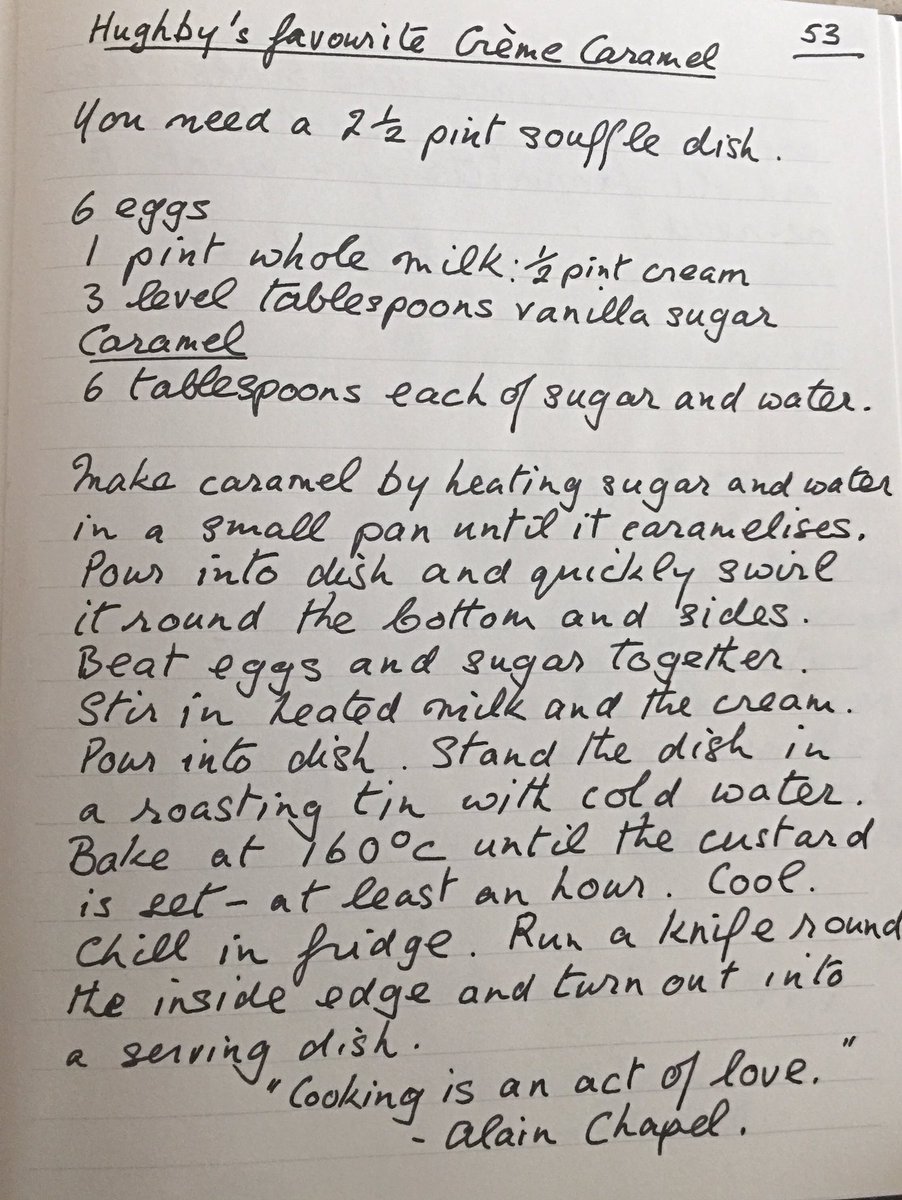 Hughby's favourite Crème Caramel 53
You need a 2½ pint souffle dish.
6 eggs
1 pint whole milk: ½ pint cream
3 level tablespoons vanilla sugar
Caramel
6 tablespoons each of sugar and water.
Make caramel by heating sugar and water
in a small pan until it caramelises.
Pour into dish and quickly swirl
it round the bottom and sides.
Beat eggs and sugar together.
Stir in heated milk and the cream.
Pour into dish. Stand the dish in
a roasting tin with cold water.
Bake at 160°C until the custard
is set - at least an hour. Cool.
Chill in fridge. Run a knife round
the inside edge and turn out into
a serving dish.
"Cooking is an act of love."
- Alain Chapel.